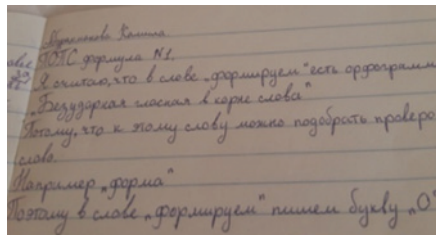 ПОПС формула N1.
Я считаю, что в слове "формируем" есть орфограмм
"Безударная гласная в корне слова"
Потому, что к этому слову можно подобрать проверо
слово.
Например "форма"
Поэтому в слове "формируем" пишем букву "О"